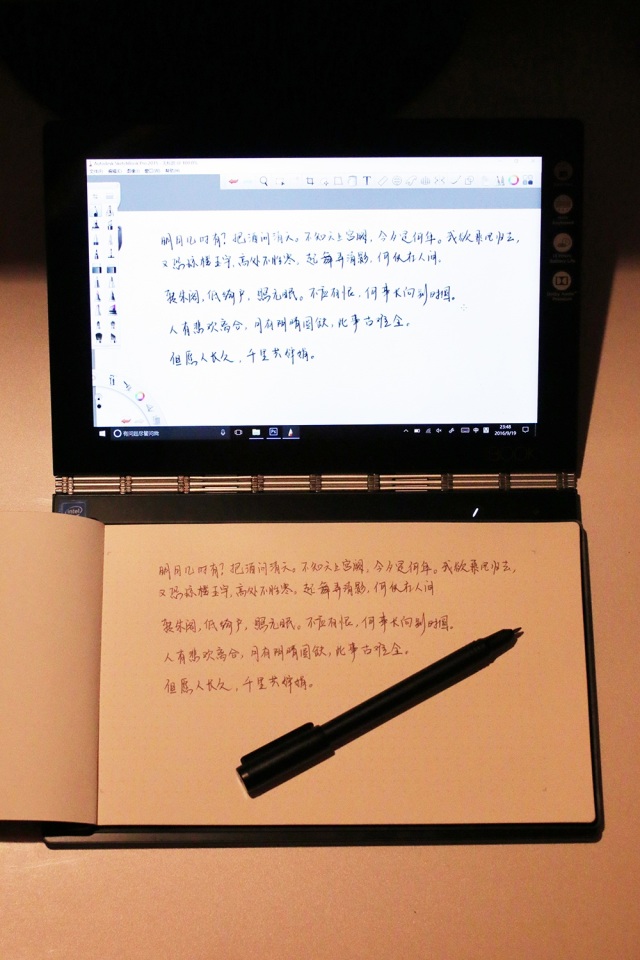 明月几时有?把酒问清天。不知天上宫阙,今夕是何年。我欲乘风归去,
又恐琼楼玉宇,高处不胜寒。起舞弄清影,何似在人间。
转朱阁,低绮户,照无眠。不应有恨,何事长向别时圆。
人有悲欢离合,月有阴晴圆缺,此事古难全。
但愿人长久,千里共婵娟。
有问题尽管问我
中
23:48
2016/9/19
intel
明月几时有?把酒问清天。不知天上宫阙,今夕是何年。我欲乘风归去,
又恐琼楼玉宇,高处不胜寒。起舞弄清影,何似在人间
转朱阁,低绮户,照无眠。不应有恨,何事长向别时圆。
人有悲欢离合,月有阴晴圆缺,此事古难全。
但愿人长久,千里共婵娟。